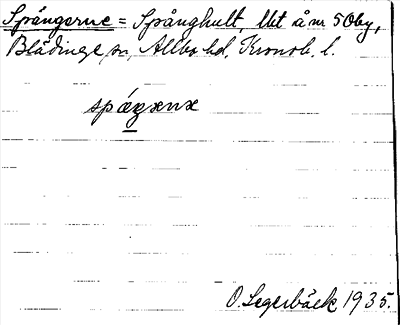 Spångerne = Spånghult, lht å nr 5 Oby,
Blädinge sn, Allbo hd, Kronob. l.
O. Legerbäck 1935.